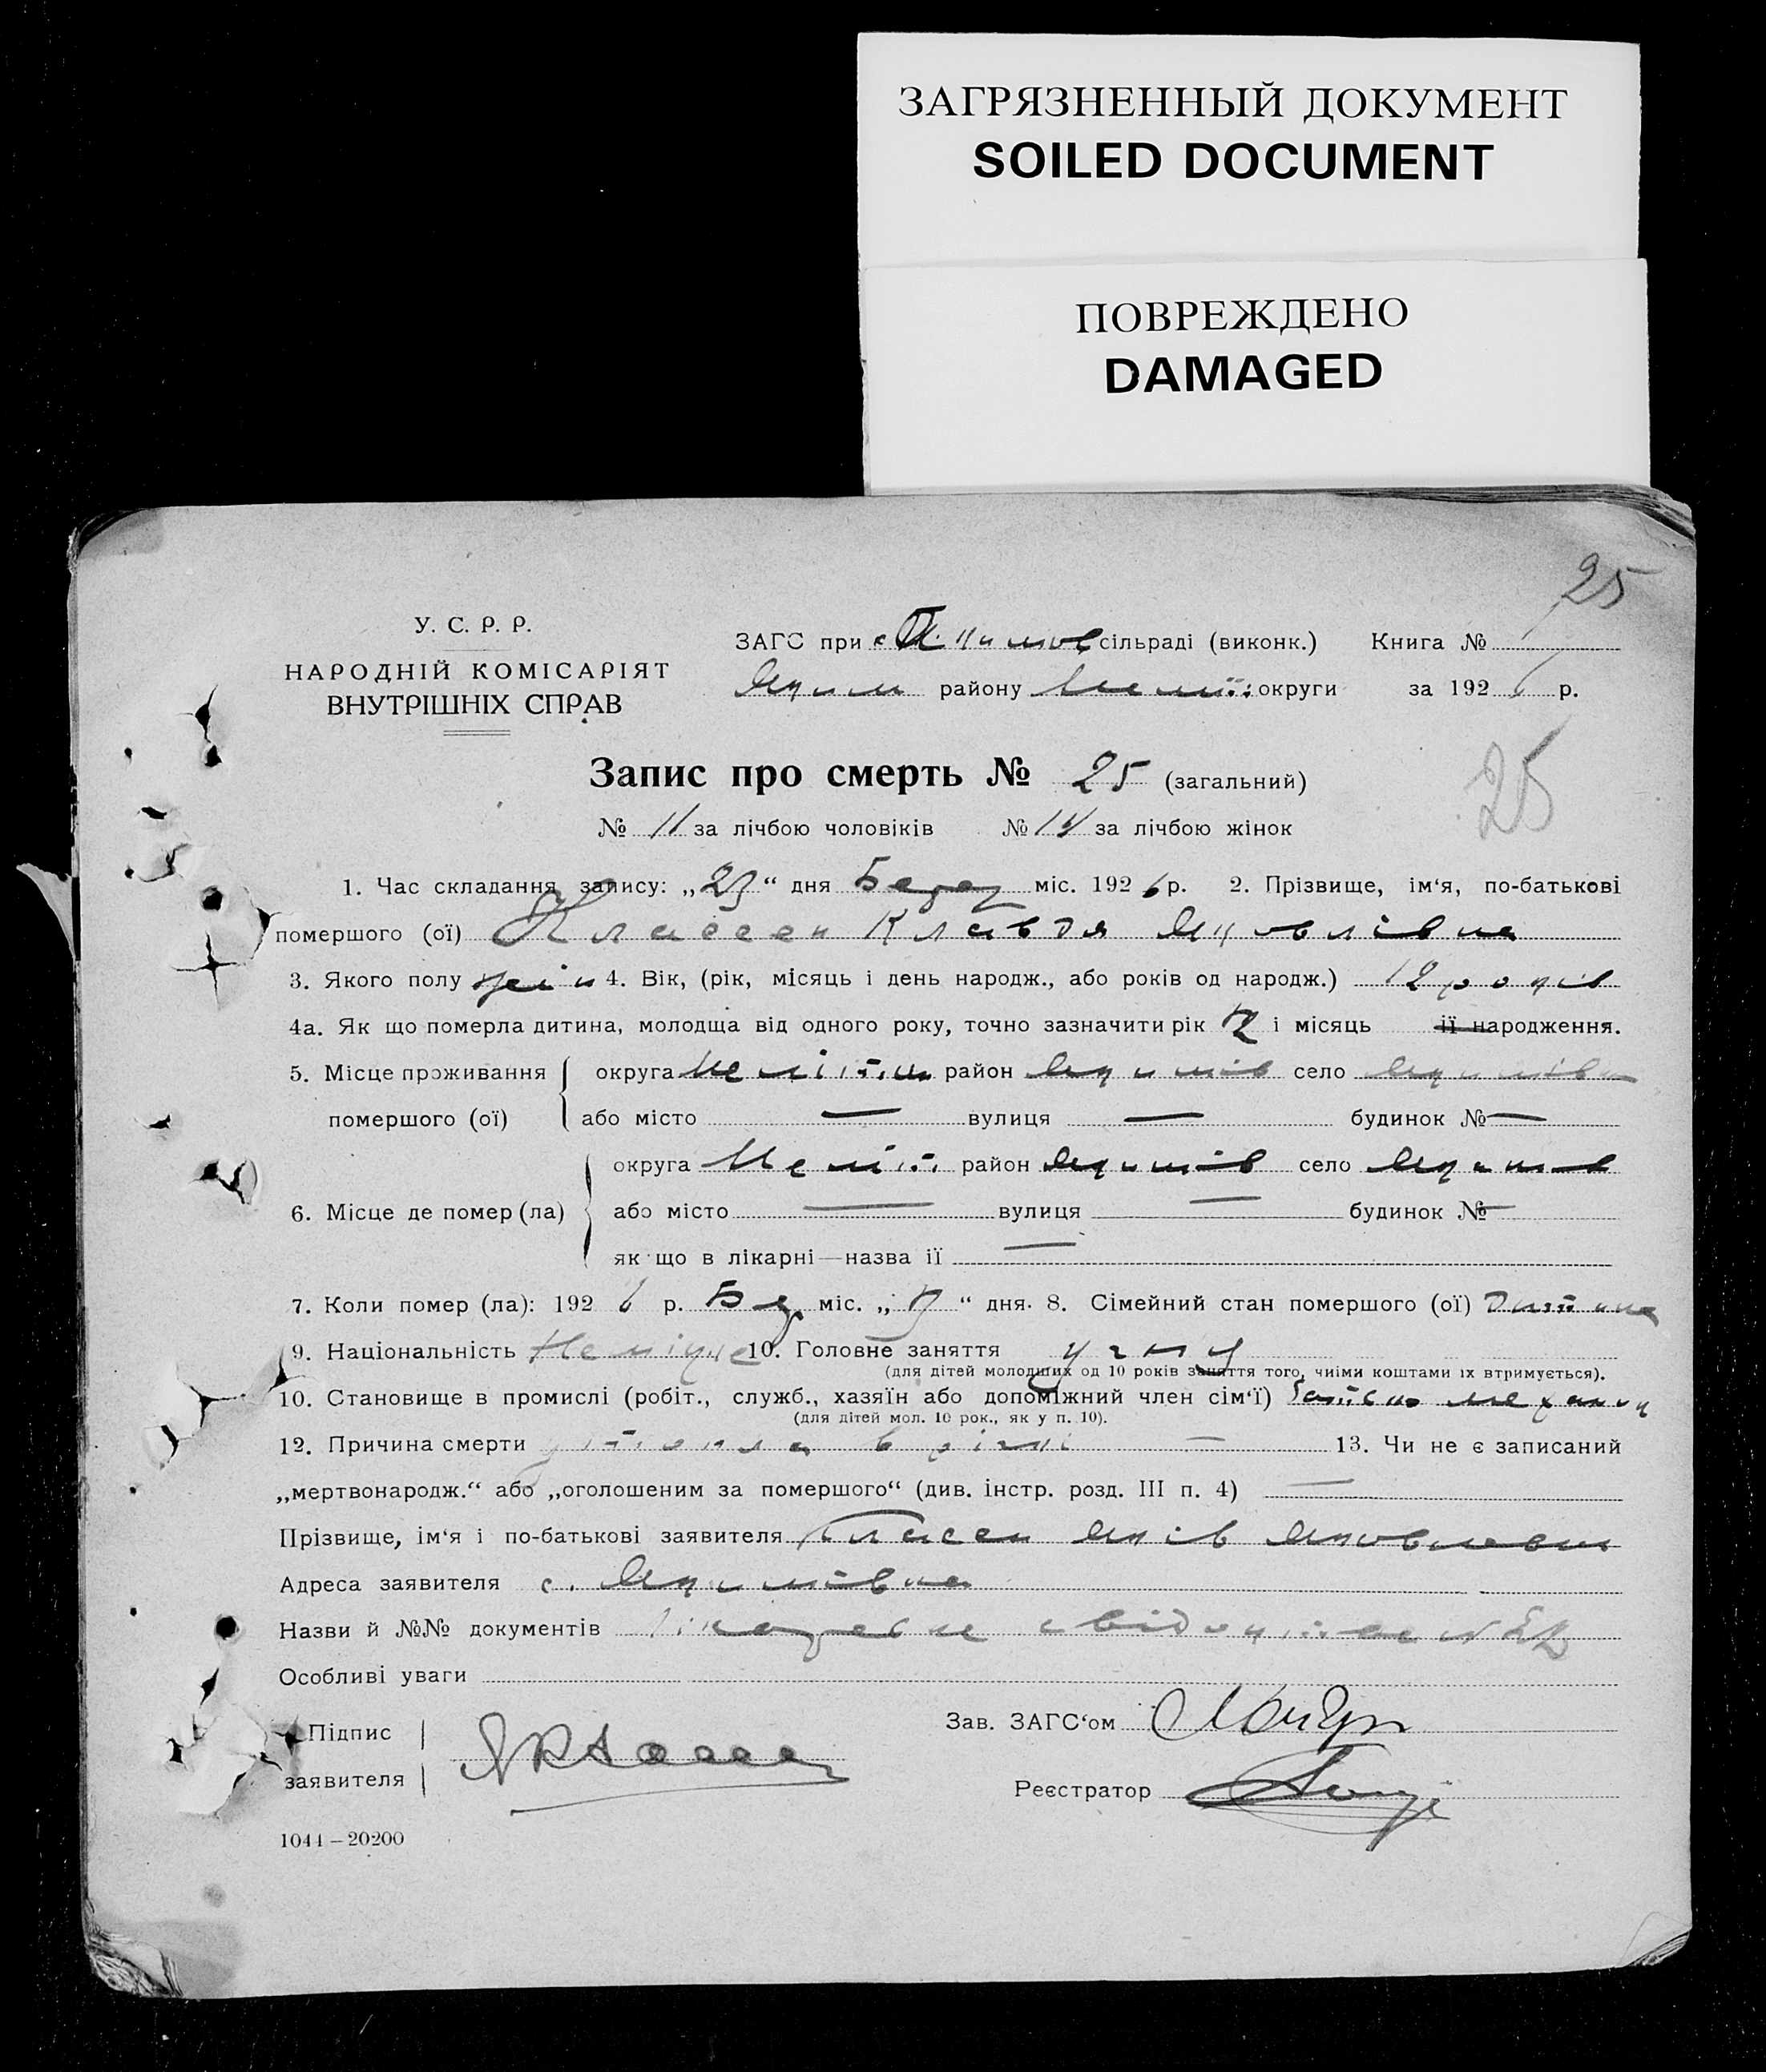 ЗАГРЯЗНЕННЫЙ ДОКУМЕНТ
SOILED DOCUMENT
ПОВРЕЖДЕНО
DAMAGED
25
У. С. Р. Р.
НАРОДНІЙ КОМІСАРІЯТ
ВНУТРІШНІХ СПРАВ
ЗАГС при сільраді (виконк.) Книга №
Яким району Меліт. округи за 192 6 р.
Запис про смерть № 25 (загальний)
25
№ 11 за лічбою чоловіків № 14 за лічбою жінок
1. Час складання запису: „23“ дня Берез міс. 192 6 р. 2. Прізвище, ім‘я, по-батькові
помершого (ої) Классен Клавдя Яковлівна
3. Якого полу жін 4. Вік, (рік, місяць і день народж., або років од народж.) 12 років
4а. Як що померла дитина, молодща від одного року, точно зазначити рік і місяць її народження.
5. Місце проживання округа Меліт. район Якимів село Якимівка
помершого (ої) або місто — вулиця — будинок № —
округа Меліт. район Якимів село Якимів
6. Місце де помер (ла) або місто — вулиця — будинок № —
як що в лікарні—назва її —
7. Коли помер (ла): 192 6 р. Бер міс. „ “ дня. 8. Сімейний стан помершого (ої) Дитина
9. Національність Неміцке 10. Головне заняття
(для дітей молодших од 10 років заняття того, чиїми коштами їх втримується).
10. Становище в промислі (робіт., служб., хазяїн або допоміжний член сім‘ї) механік
(для дітей мол. 10 рок., як у п. 10).
12. Причина смерти утопла в річці — 13. Чи не є записаний
„мертвонародж.“ або „оголошеним за помершого“ (див. інстр. розд. III п. 4) —
Прізвище, ім‘я і по-батькові заявителя Класен Яків Яковлевич
Адреса заявителя с. Якимівка
Назви й №№ документів Лікарське свідоцтво №
Особливі уваги
Підпис
заявителя
Зав. ЗАГС‘ом
Реєстратор
1044—20200